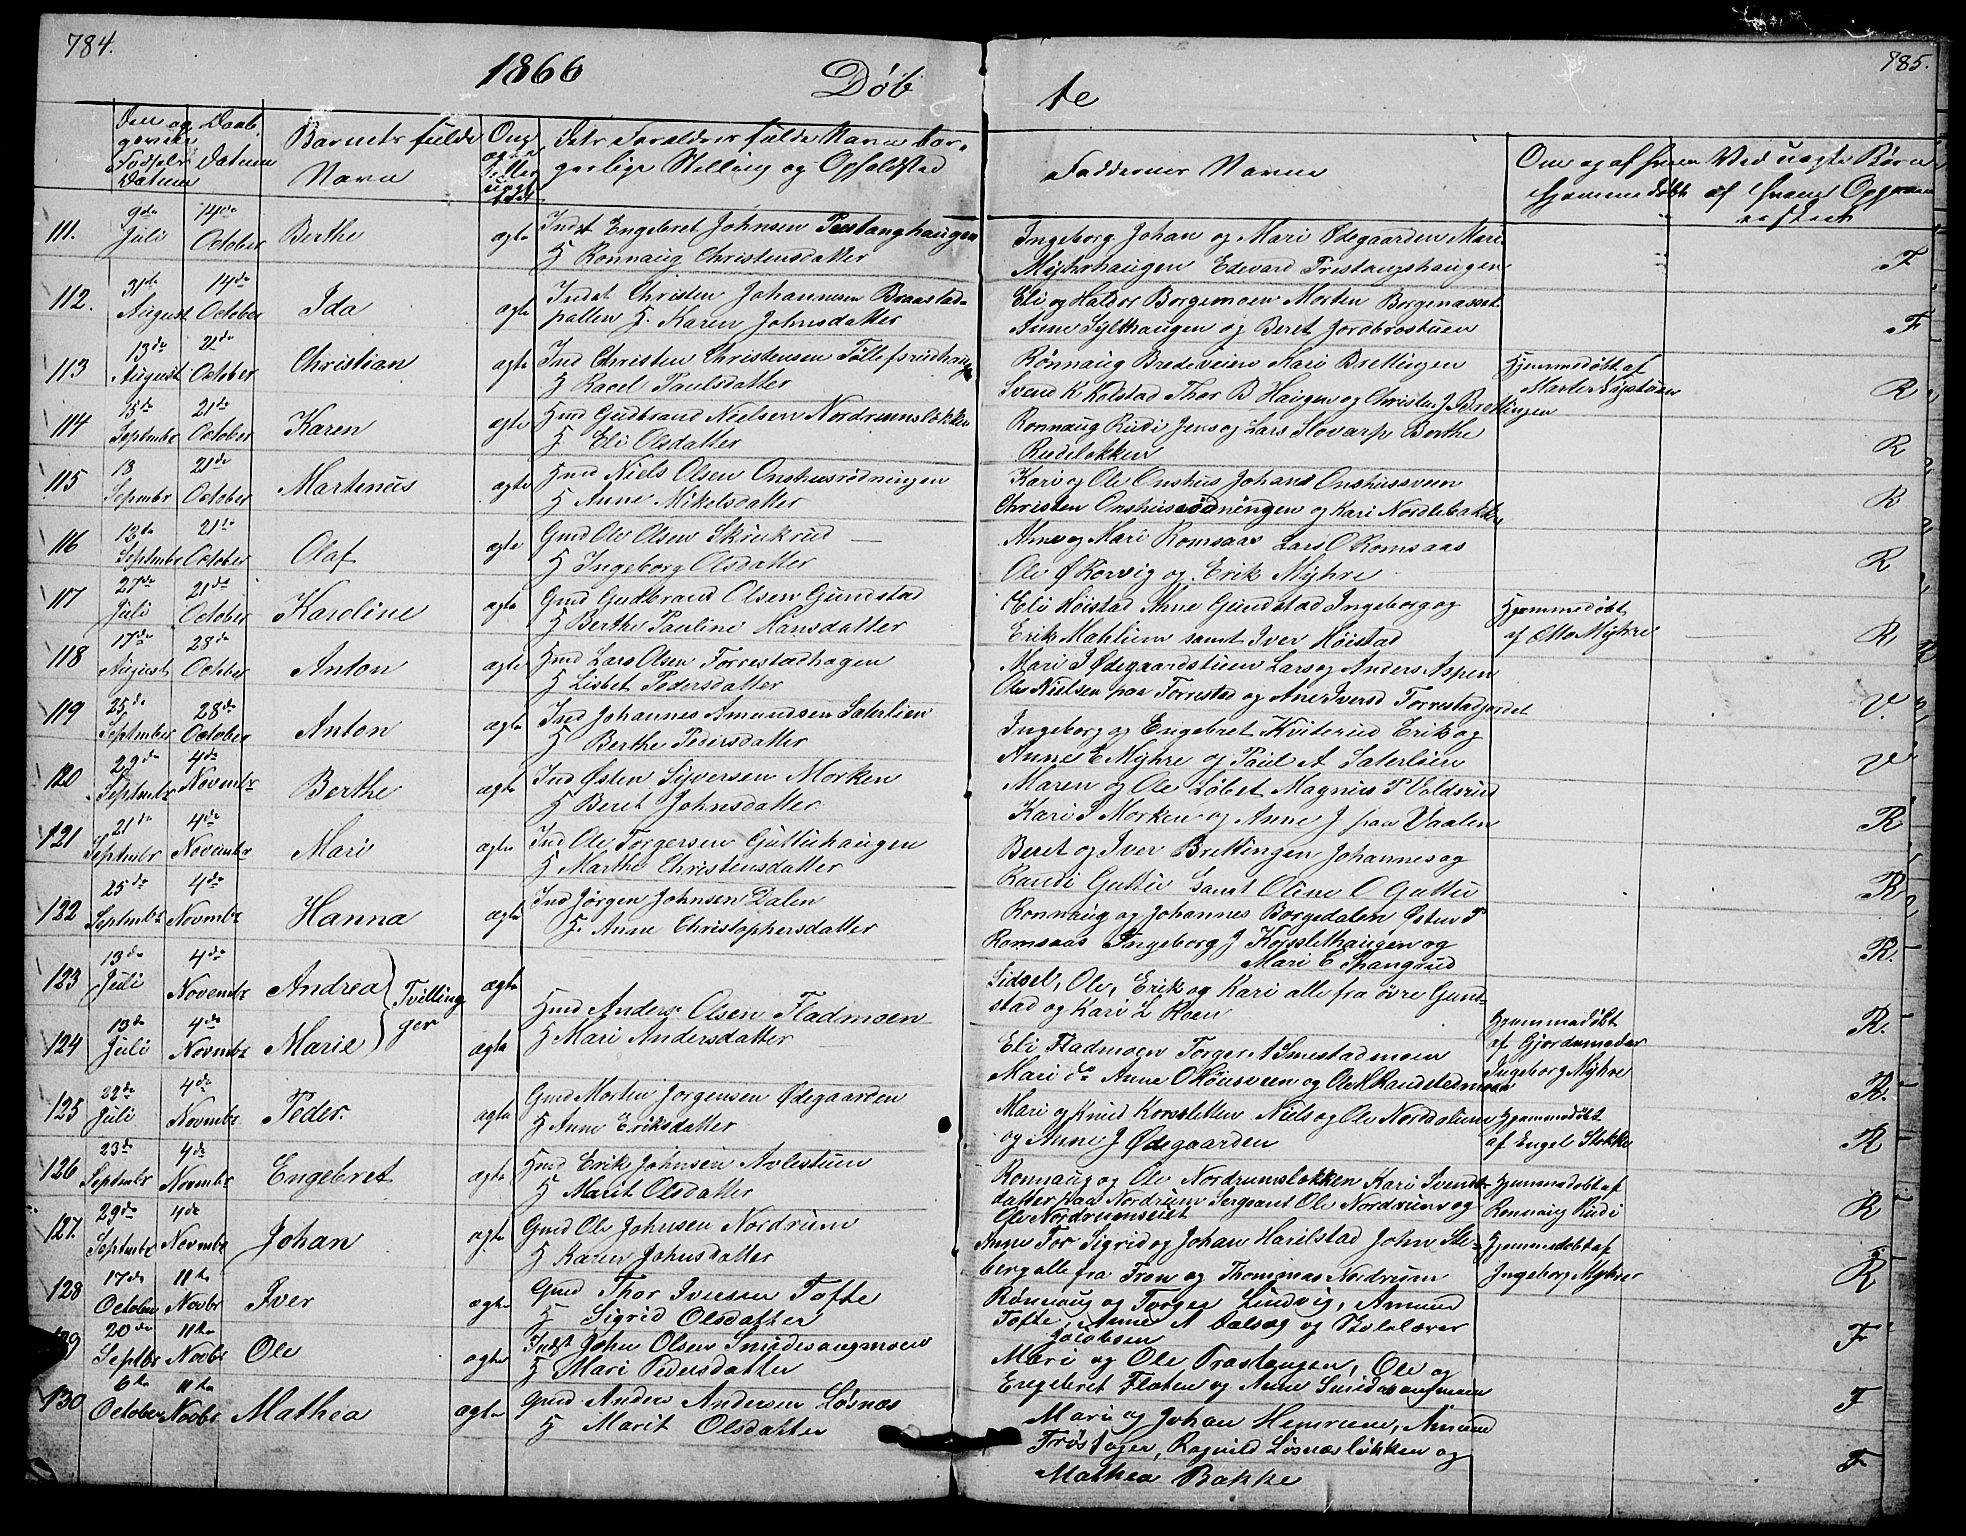 784.
785.
1866
Døb
te
Den og Daab
Fødsels Datum
Datum
Barnets fulde
Navn
Om
ægte
eller
uægte
Dets Forældres fulde Navn bor-
gerlige Stilling og Opholdsted
Faddernes Navne
Om og af hvem
hjemmedøbt
Ved uægte Børn
af hvem Opgaven
er skeet
111. 9de Juli 14de October Berthe ægte Indst Engebret Johnsen
H Rønnaug Christensdatter
Ingeborg Johan og Mari Ødegaarden Mari
Myhrhaugen Edevard Tristangshaugen F
112. 31te August 14de October Ida ægte Indst Christen Johannesen Braastad-
pallen H. Karen Johnsdatter
Eli og Haldor Borgemoen Morten Borgenasset
Anne Sylthaugen og Beret Jordbrostuen F
113 13de August 21de October Christian ægte Ind Christen Christensen Tollefsrudhaug
H Racel Paulsdatter
Rønnaug Bredeveien Kari Brettingen
Svend K Kolstad Thor B Haugen og Christen J Brettingen
Hjemmedøbt af
Marte Nystuen R
114 15de Septmbr 21de October Karen ægte Hmd Gudbrand Nielsen Nordrumsløkken
H Eli Olsdatter
Ronnaug Rudi Jens og Lars Slovarp Berthe
Rudeløkken R
115 18 Sepmbr 21de October Martinus ægte Hmd Niels Olsen Onshusrødningen
H Anne Mikelsdatter
Kari og Ole Onshus Johans Onshussveen
Christen Onshusrødningen og Kari Nordlebakken R
116 12te Septmbr 21de October Olaf ægte Gmd Ole Olsen Skrukrud
H Ingeborg Olsdatter
Anne og Mari Romsaas Lars O Romsaas
Ole Ø Korvig og Erik Myhre R
117 27de Juli 21de October Karoline ægte Gmd Gudbrand Olsen Gundstad
H Berthe Pauline Hansdatter
Eli Høistad Anne Gundstad Ingeborg og
Erik Mahlum samt Iver Høistad
Hjemmedøbt
af Otto Myhre R
118 17de August 28de October Anton ægte Hmd Lars Olsen Forrestadhagen
H Lisbet Pedersdatter
Mari J Ødegaardstuen Lars og Anders Aspen
Ole Nielsen paa Forrestad og Ane Iversd Forrestadjordet V.
119 25de September 28de October Anton ægte Ind Johannes Amundsen Saterlien
H Berthe Pedersdatter
Ingeborg og Engebret Kviterud Erik og
Anne E Myhre og Paul A Saterlien V
120 29de Septmbr 4de Novembr Berthe ægte Ind Østen Syversen Morken
H Beret Johnsdatter
Maren og Ole Løbet Magnus P Voldsrud
Kari S Morken og Anne J paa Vaalen R
121 21de Septmbr 4de Novembr Mari ægte Ind Ole Torgersen Guttuhaugen
H Marthe Christensdatter
Beret og Iver Brettingen Johannes og
Randi Guttu samt Oline O Guttu R
122 25de Septmbr 4de Novmbr Hanna ægte Ind Jørgen Johnsen Dalen
H. Anne Christophersdatter
Ronnaug og Johannes Borgedalen Østen P
Romsaas Ingeborg J Korsslethaugen og
Mari E Spangrud R.
123 13de Juli 4de Novembr Andrea ægte
Tvillin-
ger
Hmd Anders Olsen Fladmoen
H Mari Andersdatter
Sidsel, Ole, Erik og Kari alle fra øvre Gund-
stad og Kari L Roen R.
124 13de Juli 4de Novmbr Marie ægte
Eli Fladmoen Torger A Smestadmoen
Mari do Anne O
Hjemmedøbt
af Gjordemoder
Ingeborg Myhre R.
125 22de Juli 4de Novmbr Peder. ægte Gmd Morten Jorgensen Ødegaarden
H Anne Eriksdatter
Mari og Knud Korssletten Niels og Ole Nordolien
og Anne J Ødegaarden
Hjemmedøbt
af Engel Stokke R
126 23de Septmbr 4de Novmbr Engebret ægte Hmd Erik Johnsen Avlestuen
H Marit Olsdatter
Ronnaug og Ole Nordrumsløkken Kari Svends-
datter paa Nordrum Sergeant Ole Nordrum og
Ole Nordrumseiet
Hjemmedøbt af
Ronnaug Rudi R
127. 29de Septmbr 4de Novmbr Johan ægte Gmd Ole Johnsen Nordrum
H Karen Johnsdatter
Anne Tor Sigrid og Johan Harilstad John Ste-
berg alle fra Fron og Thommas Nordrum
Hjemmedøbt af
Ingeborg Myhre R
128 17de October 11te Novbr Iver ægte Gmd Thor Iversen Tofte
H Sigrid Olsdatter
Rønnaug og Torger Lundvig, Amund
Tofte, Anne A Dalseg og Skolelærer
Jacobsen F
129 20de Septbr 11te Novbr Ole ægte Indst John Olsen Smidesangmoen
H Mari Pedersdatter
Mari og Ole Trostaugen, Ole og
Engebret Flaten og Anne Smidesangmoen F
130 6te October 11te Novbr Mathea ægte Gmd Anders Andersen Løsnæs
H Marit Olsdatter
Mari og Johan Hemrum, Amund
Trøstager, Ragnild Løsnæsløkken og
Mathea Bakke F